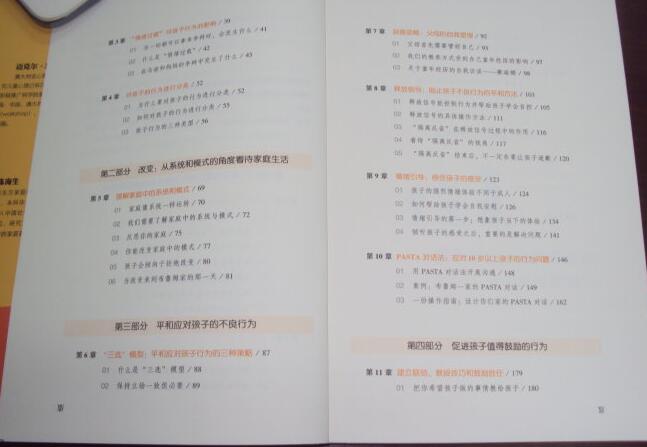 第3章 “情绪过载”对孩子行为的影响 / 39
01 当一切都可以拿来争执时，会发生什么 / 41
02 什么是“情绪过载” / 42
03 在马谛和妈妈的争闹中发生了什么 / 43
第4章 对孩子的行为进行分类 / 52
01 为什么要对孩子的行为进行分类 / 52
02 如何对孩子的行为进行分类 / 55
03 孩子行为的三种类型 / 56
第二部分 改变：从系统和模式的角度看待家庭生活
第5章 理解家庭中的系统和模式 / 69
01 家庭像系统一样运转 / 70
02 我们需要了解家庭中的系统与模式 / 72
03 反思你的家庭 / 75
04 你能改变家庭中的模式 / 77
05 孩子会倾向于拒绝改变 / 80
06 当改变来到布鲁姆家的那一天 / 81
第三部分 平和应对孩子的不良行为
第6章 “三选”模型：平和应对孩子行为的三种策略 / 87
01 什么是“三选”模型 / 88
02 保持立场一致很必要 / 89
第7章 自我策略：父母的自我管理 / 92
01 父母首先需要管好自己 / 93
02 我们的教养方式受到自己童年经历的影响 / 97
第8章 释放信号：阻止孩子不良行为的平和方法 / 103
01 释放信号能控制行为并帮助孩子学会自控 / 105
02 释放信号的具体操作方法 / 111
03 “隔离反省”在释放信号过程中的作用 / 116
04 看待“隔离反省”的视角 / 118
05 “隔离反省”结束后，不一定非要让孩子道歉 / 120
第9章 情绪引导：感受孩子的感受 / 123
01 孩子的强烈情绪体验不同于成人 / 124
02 如何帮助孩子学会自我安慰 / 126
03 情绪引导的第一步：想象孩子当下的体验 / 134
04 倾听孩子的感受之后，重要的是解决问题 / 141
第10章 PASTA对话法：应对10岁以上孩子的行为问题 / 146
01 用PASTA对话法开展沟通 / 148
02 案例：布鲁姆一家的PASTA对话 / 149
03 一份操作指南：设计你们家的PASTA对话 / 162
第四部分 促进孩子值得鼓励的行为
第11章 建立联结、教授技巧和鼓励胜任 / 179
01 把你希望孩子做的事情教给孩子 / 180